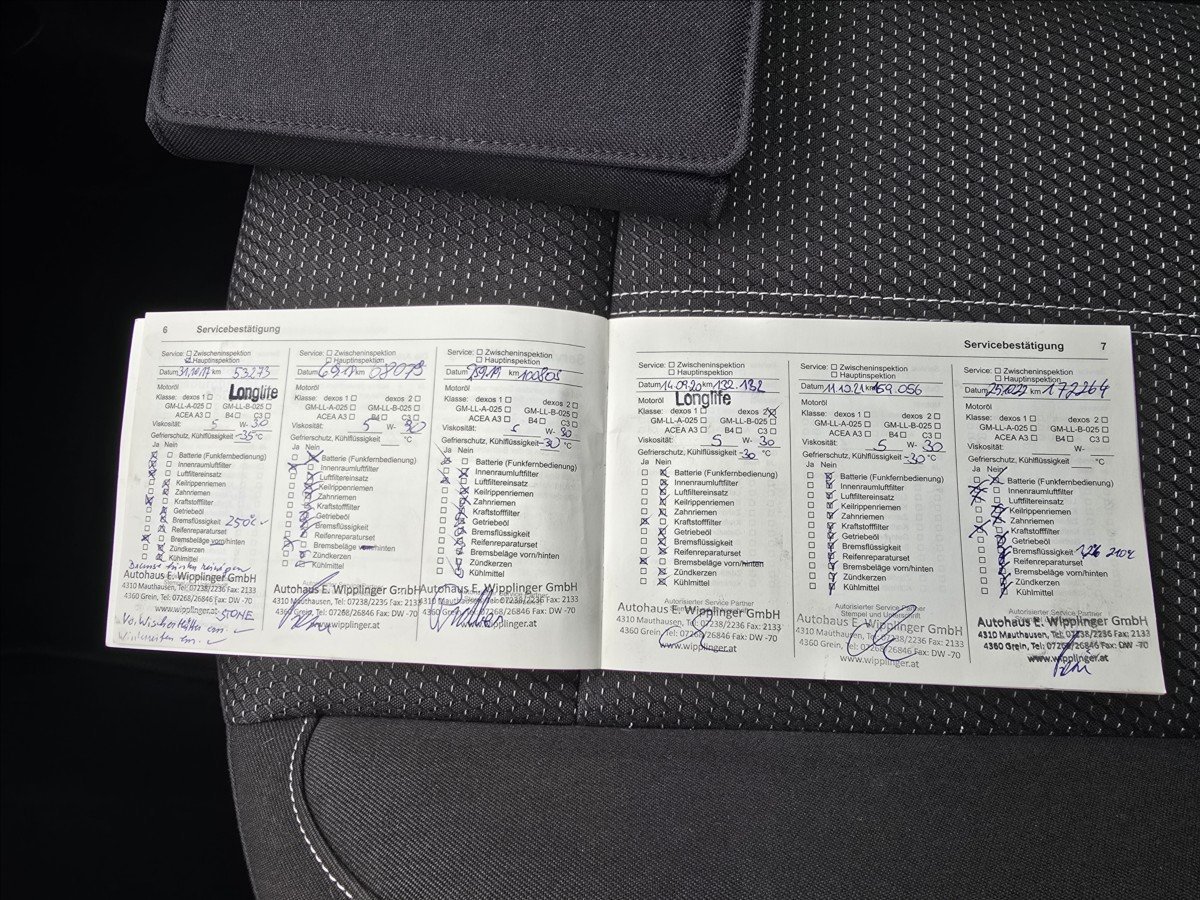 6 Servicebestätigung
Service: Zwischeninspektion
Hauptinspektion
Datum 31.10.17 km 53273
Motoröl
Longlife
Klasse: dexos 1
GM-LL-A-025 GM-LL-B-025
ACEA A3 B4 C3
Viskosität: 5 W- 30
Gefrierschutz, Kühlflüssigkeit -35 °C
Ja Nein
Batterie (Funkfernbedienung)
Innenraumluftfilter
Luftfiltereinsatz
Keilrippenriemen
Zahnriemen
Kraftstofffilter
Getriebeöl
Bremsflüssigkeit 250°C
Reifenreparaturset
Bremsbeläge vorn/hinten
Zündkerzen
Kühlmittel
Bremse hinten reinigen
Autohaus E. Wipplinger GmbH
4310 Mauthausen, Tel: 07238/2236 Fax: 2133
4360 Grein, Tel: 07268/26846 Fax: DW -70
www.wipplinger.at
Service: Zwischeninspektion
Hauptinspektion
Datum km
Motoröl
Klasse: dexos 1 dexos 2
GM-LL-A-025 GM-LL-B-025
ACEA A3 B4 C3
Viskosität: 5 W- 30
Gefrierschutz, Kühlflüssigkeit °C
Ja Nein
Batterie (Funkfernbedienung)
Innenraumluftfilter
Luftfiltereinsatz
Keilrippenriemen
Zahnriemen
Kraftstofffilter
Getriebeöl
Bremsflüssigkeit
Reifenreparaturset
Bremsbeläge vorn/hinten
Zündkerzen
Kühlmittel
Autohaus E. Wipplinger GmbH
4310 Mauthausen, Tel: 07238/2236 Fax: 2133
4360 Grein, Tel: 07268/26846 Fax: DW -70
www.wipplinger.at
Service: Zwischeninspektion
Hauptinspektion
Datum km 100805
Motoröl
Klasse: dexos 1 dexos 2
GM-LL-A-025 GM-LL-B-025
ACEA A3 B4 C3
Viskosität: 5 W- 30
Gefrierschutz, Kühlflüssigkeit -30 °C
Ja Nein
Batterie (Funkfernbedienung)
Innenraumluftfilter
Luftfiltereinsatz
Keilrippenriemen
Zahnriemen
Kraftstofffilter
Getriebeöl
Bremsflüssigkeit
Reifenreparaturset
Bremsbeläge vorn/hinten
Zündkerzen
Kühlmittel
Autohaus E. Wipplinger GmbH
4310 Mauthausen, Tel: 07238/2236 Fax: 2133
4360 Grein, Tel: 07268/26846 Fax: DW -70
www.wipplinger.at
Servicebestätigung 7
Service: Zwischeninspektion
Hauptinspektion
Datum 14.09.20 km 132.132
Motoröl
Longlife
Klasse: dexos 1 dexos 2
GM-LL-A-025 GM-LL-B-025
ACEA A3 B4 C3
Viskosität: 5 W- 30
Gefrierschutz, Kühlflüssigkeit -30 °C
Ja Nein
Batterie (Funkfernbedienung)
Innenraumluftfilter
Luftfiltereinsatz
Keilrippenriemen
Zahnriemen
Kraftstofffilter
Getriebeöl
Bremsflüssigkeit
Reifenreparaturset
Bremsbeläge vorn/hinten
Zündkerzen
Kühlmittel
Autorisierter Service Partner
Autohaus E. Wipplinger GmbH
4310 Mauthausen, Tel: 07238/2236 Fax: 2133
4360 Grein, Tel: 07268/26846 Fax: DW -70
www.wipplinger.at
Service: Zwischeninspektion
Hauptinspektion
Datum 11.10.21 km 159.056
Motoröl
Klasse: dexos 1 dexos 2
GM-LL-A-025 GM-LL-B-025
ACEA A3 B4 C3
Viskosität: 5 W- 30
Gefrierschutz, Kühlflüssigkeit -30 °C
Ja Nein
Batterie (Funkfernbedienung)
Innenraumluftfilter
Luftfiltereinsatz
Keilrippenriemen
Zahnriemen
Kraftstofffilter
Getriebeöl
Bremsflüssigkeit
Reifenreparaturset
Bremsbeläge vorn/hinten
Zündkerzen
Kühlmittel
Autorisierter Service Partner
Stempel und Unterschrift
Autohaus E. Wipplinger GmbH
4310 Mauthausen, Tel: 07238/2236 Fax: 2133
4360 Grein, Tel: 07268/26846 Fax: DW -70
www.wipplinger.at
Service: Zwischeninspektion
Hauptinspektion
Datum km 172264
Motoröl
Klasse: dexos 1 dexos 2
GM-LL-A-025 GM-LL-B-025
ACEA A3 B4 C3
Viskosität: W-
Gefrierschutz, Kühlflüssigkeit °C
Ja Nein
Batterie (Funkfernbedienung)
Innenraumluftfilter
Luftfiltereinsatz
Keilrippenriemen
Zahnriemen
Kraftstofffilter
Getriebeöl
Bremsflüssigkeit
Reifenreparaturset
Bremsbeläge vorn/hinten
Zündkerzen
Kühlmittel
Autorisierter Service Partner
Autohaus E. Wipplinger GmbH
4310 Mauthausen, Tel: 07238/2236 Fax: 2133
4360 Grein, Tel: 07268/26846 Fax: DW -70
www.wipplinger.at